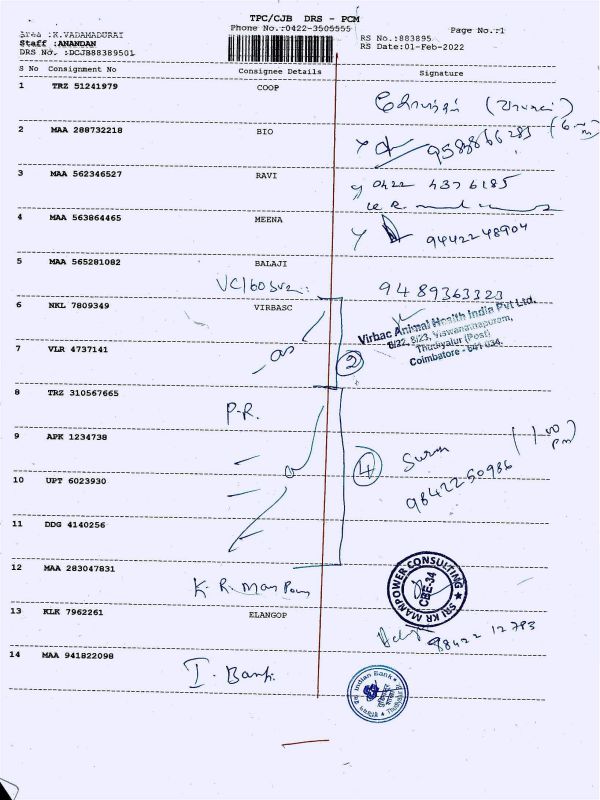 TPC/CJB DRS - PCM
Phone No.:0422-3505555
Page No.:1
Area :K.VADAMADURAI
Staff :ANANDAN
DRS No. :DCJB88389501
RS No.:883895
RS Date:01-Feb-2022
S No Consignment No Consignee Details Signature
1 TRZ 51241979 COOP
2 MAA 288732218 BIO
3 MAA 562346527 RAVI
0422 4376185
4 MAA 563864465 MEENA
9442248904
5 MAA 565281082 BALAJI
9489363323
6 NKL 7809349 VIRBASC
Virbac Animal Health India Pvt Ltd.
8/22, 8/23, Viswanathapuram,
Thudiyalur (Post)
Coimbatore - 641 034.
7 VLR 4737141
2
8 TRZ 310567665
P.R.
9 APK 1234738
4
(1.00 pm)
10 UPT 6023930
9842250986
11 DDG 4140256
12 MAA 283047831
K.R. Man Pow
SRI KR MANPOWER CONSULTING
CBE-34
13 KLK 7962261 ELANGOP
98422 12793
14 MAA 941822098
I. Bank
Indian Bank